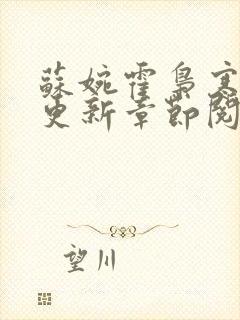 蘇婉霍梟寒
更新章節閱
望川